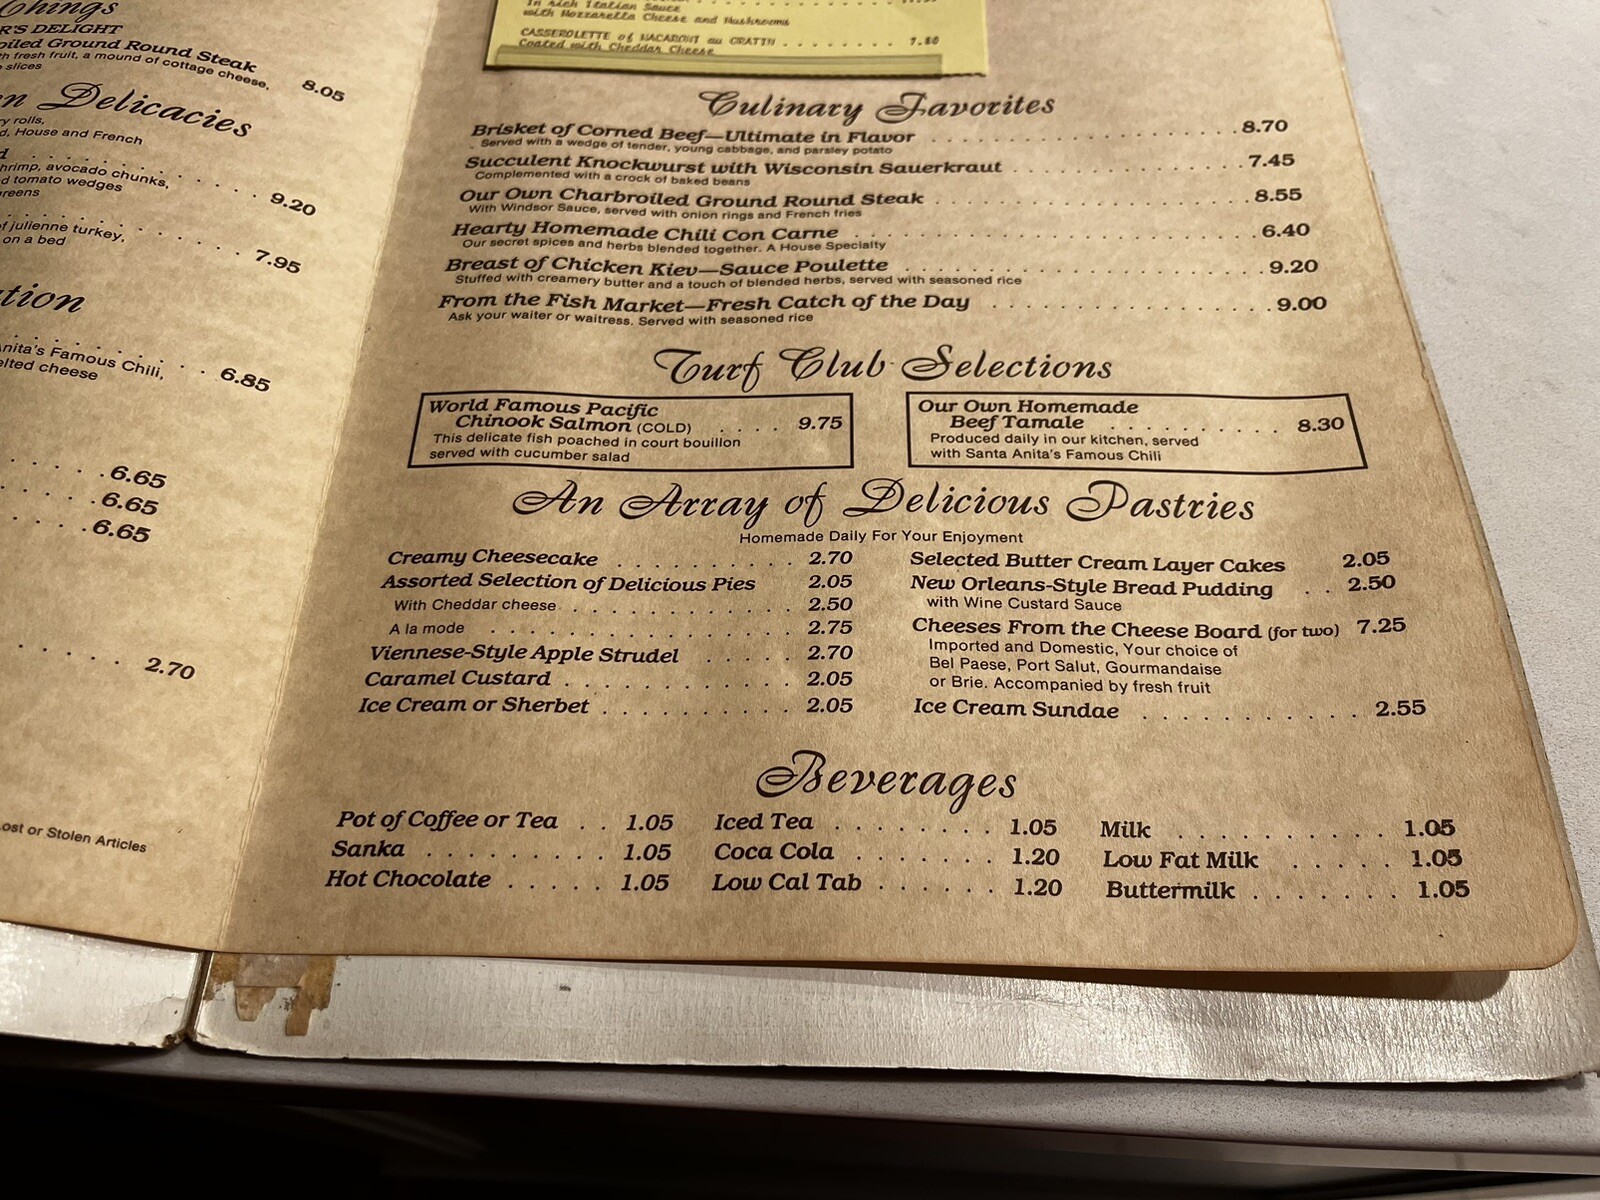 Things
R'S DELIGHT
oiled Ground Round Steak
h fresh fruit, a mound of cottage cheese,
slices
8.05
n Delicacies
ry rolls,
d, House and French
d
hrimp, avocado chunks,
d tomato wedges
greens
9.20
of julienne turkey,
on a bed
7.95
tion
Anita's Famous Chili,
elted cheese
6.85
6.65
6.65
6.65
2.70
Lost or Stolen Articles
In rich Italian Sauce
with Mozzarella Cheese and Mushrooms
CASSEROLETTE of MACARONI au GRATIN . . . . . . . . 7.80
Coated with Cheddar Cheese
Culinary Favorites
Brisket of Corned Beef—Ultimate in Flavor . . . . . . . . . . 8.70
Served with a wedge of tender, young cabbage, and parsley potato
Succulent Knockwurst with Wisconsin Sauerkraut . . . . . . . . . . 7.45
Complemented with a crock of baked beans
Our Own Charbroiled Ground Round Steak . . . . . . . . . . 8.55
With Windsor Sauce, served with onion rings and French fries
Hearty Homemade Chili Con Carne . . . . . . . . . . 6.40
Our secret spices and herbs blended together. A House Specialty
Breast of Chicken Kiev—Sauce Poulette . . . . . . . . . . 9.20
Stuffed with creamery butter and a touch of blended herbs, served with seasoned rice
From the Fish Market—Fresh Catch of the Day . . . . . . . . . . 9.00
Ask your waiter or waitress. Served with seasoned rice
Turf Club Selections
World Famous Pacific
Chinook Salmon (COLD) . . . . 9.75
This delicate fish poached in court bouillon
served with cucumber salad
Our Own Homemade
Beef Tamale . . . . . . . . . . 8.30
Produced daily in our kitchen, served
with Santa Anita's Famous Chili
An Array of Delicious Pastries
Homemade Daily For Your Enjoyment
Creamy Cheesecake . . . . . . . . . . 2.70
Assorted Selection of Delicious Pies 2.05
With Cheddar cheese . . . . . . . . . . 2.50
A la mode . . . . . . . . . . 2.75
Viennese-Style Apple Strudel . . . . . 2.70
Caramel Custard . . . . . . . . . . 2.05
Ice Cream or Sherbet . . . . . . . . . 2.05
Selected Butter Cream Layer Cakes 2.05
New Orleans-Style Bread Pudding . . 2.50
with Wine Custard Sauce
Cheeses From the Cheese Board (for two) 7.25
Imported and Domestic, Your choice of
Bel Paese, Port Salut, Gourmandaise
or Brie. Accompanied by fresh fruit
Ice Cream Sundae . . . . . . . . . . 2.55
Beverages
Pot of Coffee or Tea . . 1.05
Sanka . . . . . . . . . 1.05
Hot Chocolate . . . . . 1.05
Iced Tea . . . . . . . . 1.05
Coca Cola . . . . . . . 1.20
Low Cal Tab . . . . . . 1.20
Milk . . . . . . . . . . 1.05
Low Fat Milk . . . . . 1.05
Buttermilk . . . . . . . 1.05